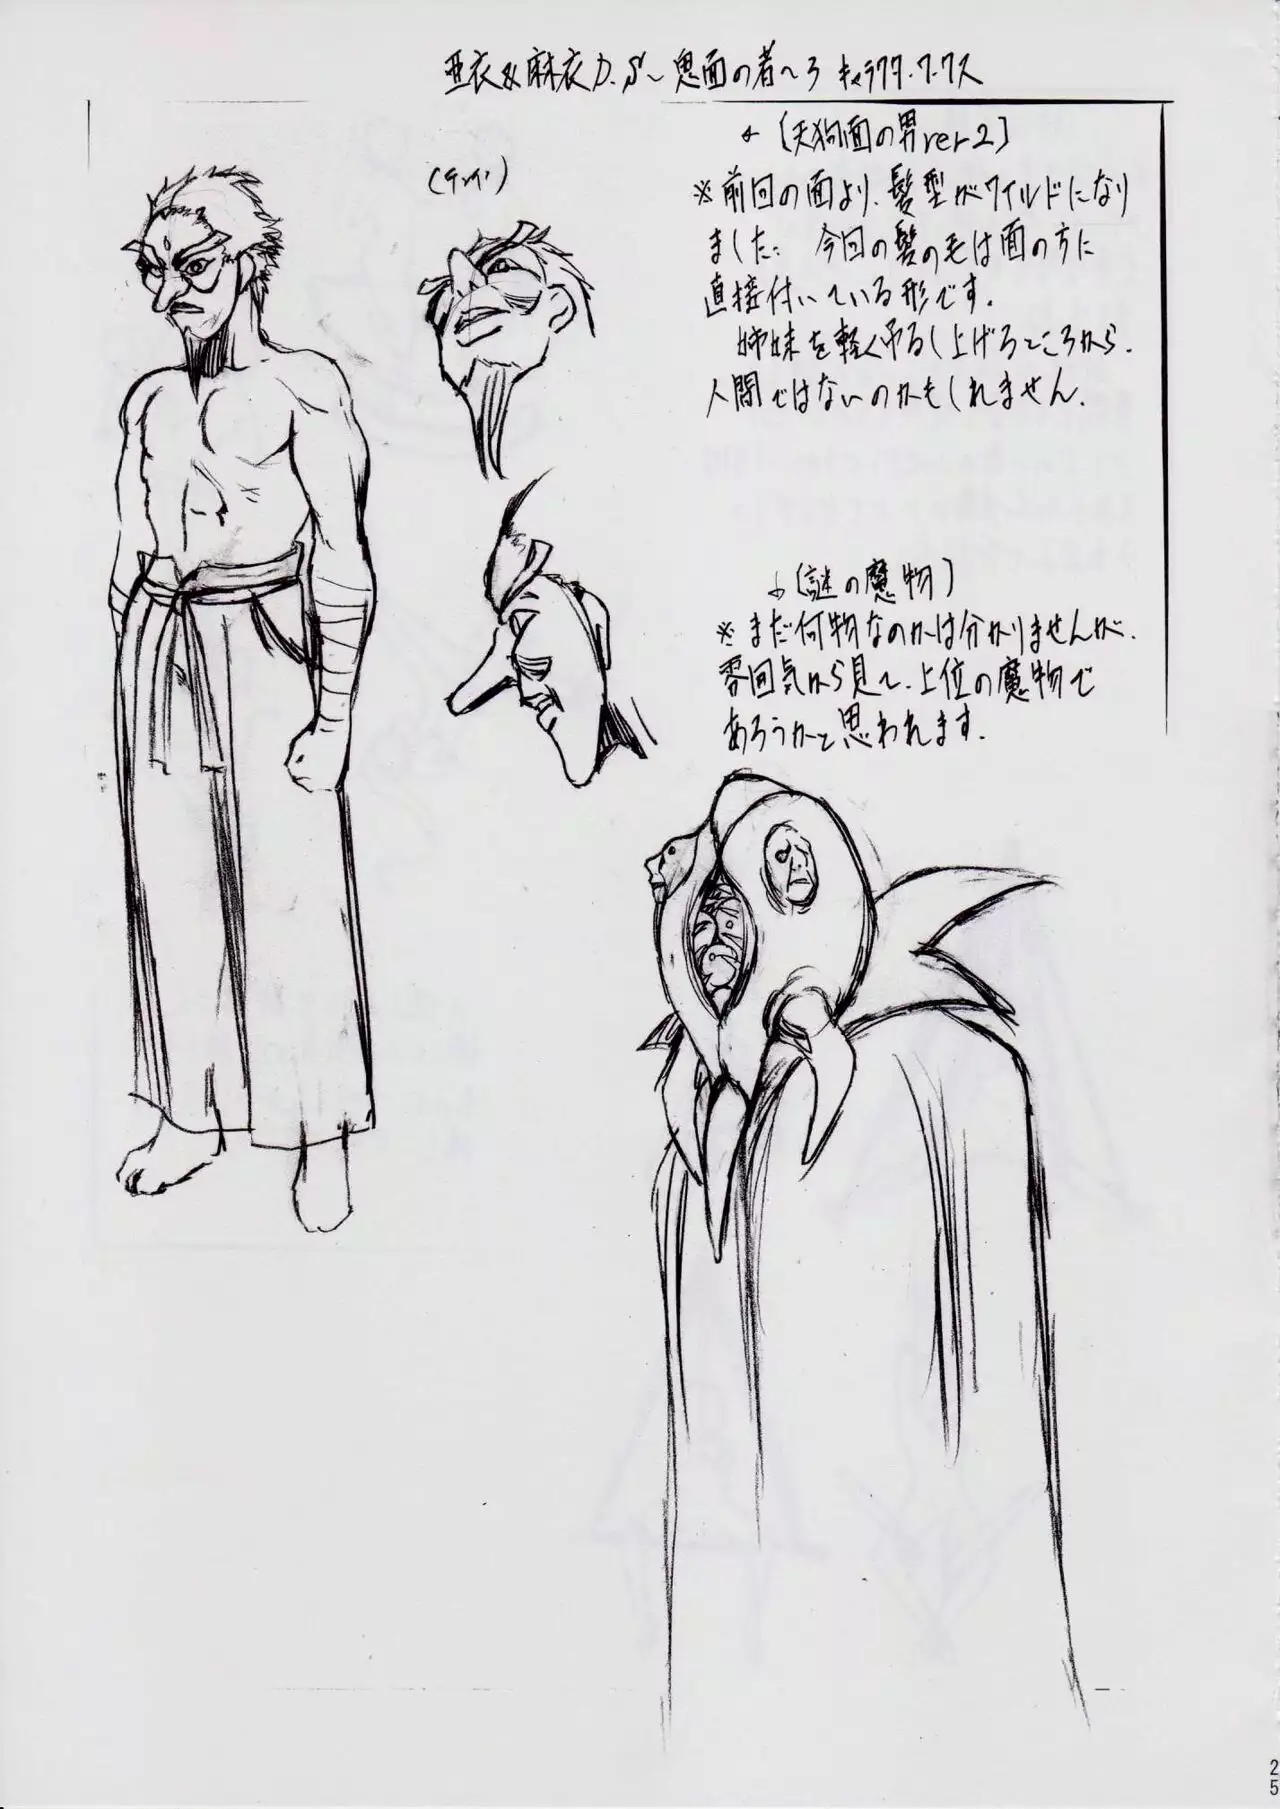 亜衣&麻衣D.S〜鬼面の者〜3 キャラクターワークス
←〔天狗面の男ver2〕
※前回の面より、髪型がワイルドになり
ました。今回の髪の毛は面の方に
直接付いている形です。
姉妹を軽く吊るし上げるところから、
人間ではないのかもしれません。
↓〔謎の魔物〕
※まだ何物なのかは分かりませんが、
雰囲気から見て、上位の魔物で
あろうかと思われます。
25